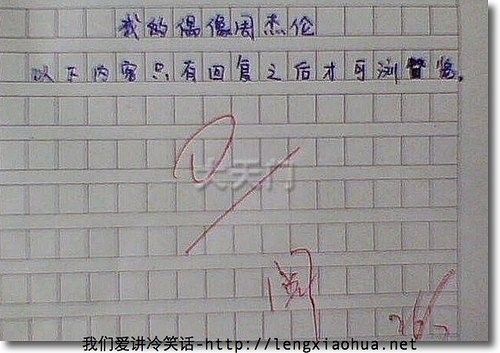 我的偶像周杰伦
以下内容只有回复之后才可浏览。
阅
我们爱讲冷笑话-http://lengxiaohua.net